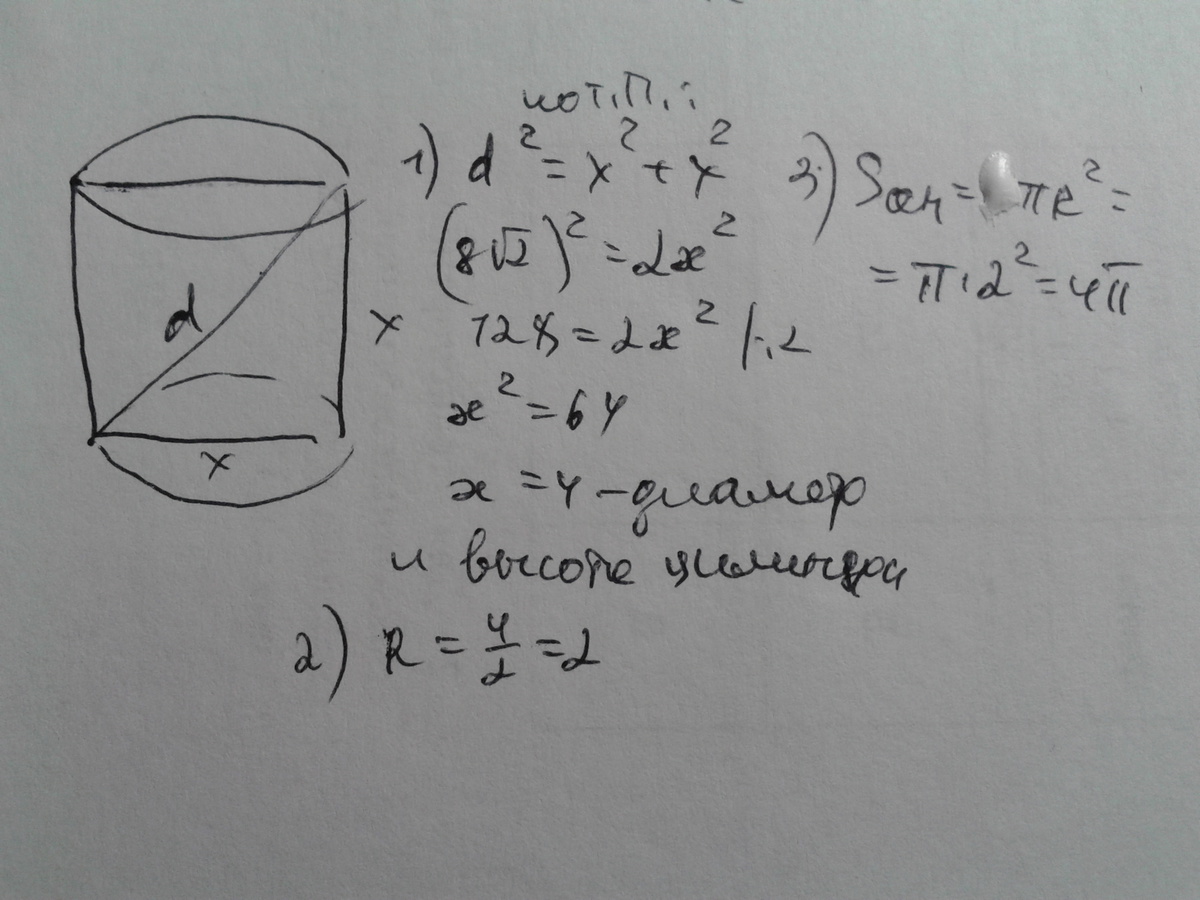 по т.П.:
1) d² = x² + x²
(8√2)² = 2x²
128 = 2x² |:2
x² = 64
x = 4 – диаметр
и высота цилиндра
2) R = 4/2 = 2
3) Sосн = πR² =
= π·2² = 4π
d
x
x